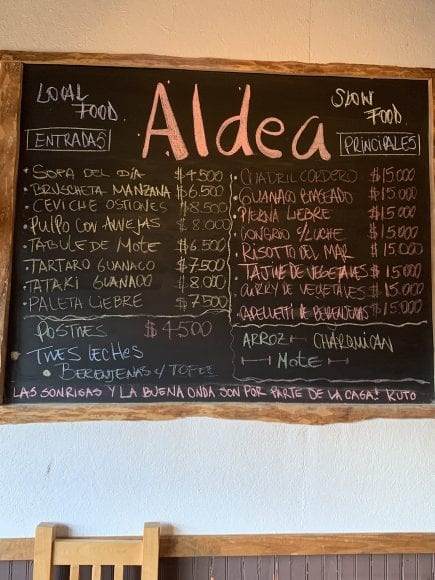 LOCAL FOOD
Aldea
SLOW FOOD
ENTRADAS
• SOPA DEL DÍA $4.500
• BRUSCHETA MANZANA $6.500
• CEVICHE OSTIONES $8.500
• PULPO CON ARVEJAS $8.000
• TABULE DE MOTE $6.500
• TARTARO GUANACO $7.500
• TATAKI GUANACO $8.000
• PALETA LIEBRE $7.500
POSTRES $4.500
TRES LECHES
• BERENJENAS Y TOFEE
PRINCIPALES
• CUADRIL CORDERO $15.000
• GUANACO BRASEADO $15.000
• PIERNA LIEBRE $15.000
• CONGRIO S/LUCHE $15.000
• RISOTTO DEL MAR $15.000
• TAJINE DE VEGETALES $15.000
• CURRY DE VEGETALES $15.000
• CAPELETTI DE BERENJENAS $15.000
ARROZ CHARQUICAN
MOTE
LAS SONRISAS Y LA BUENA ONDA SON POR PARTE DE LA CASA! KUTO